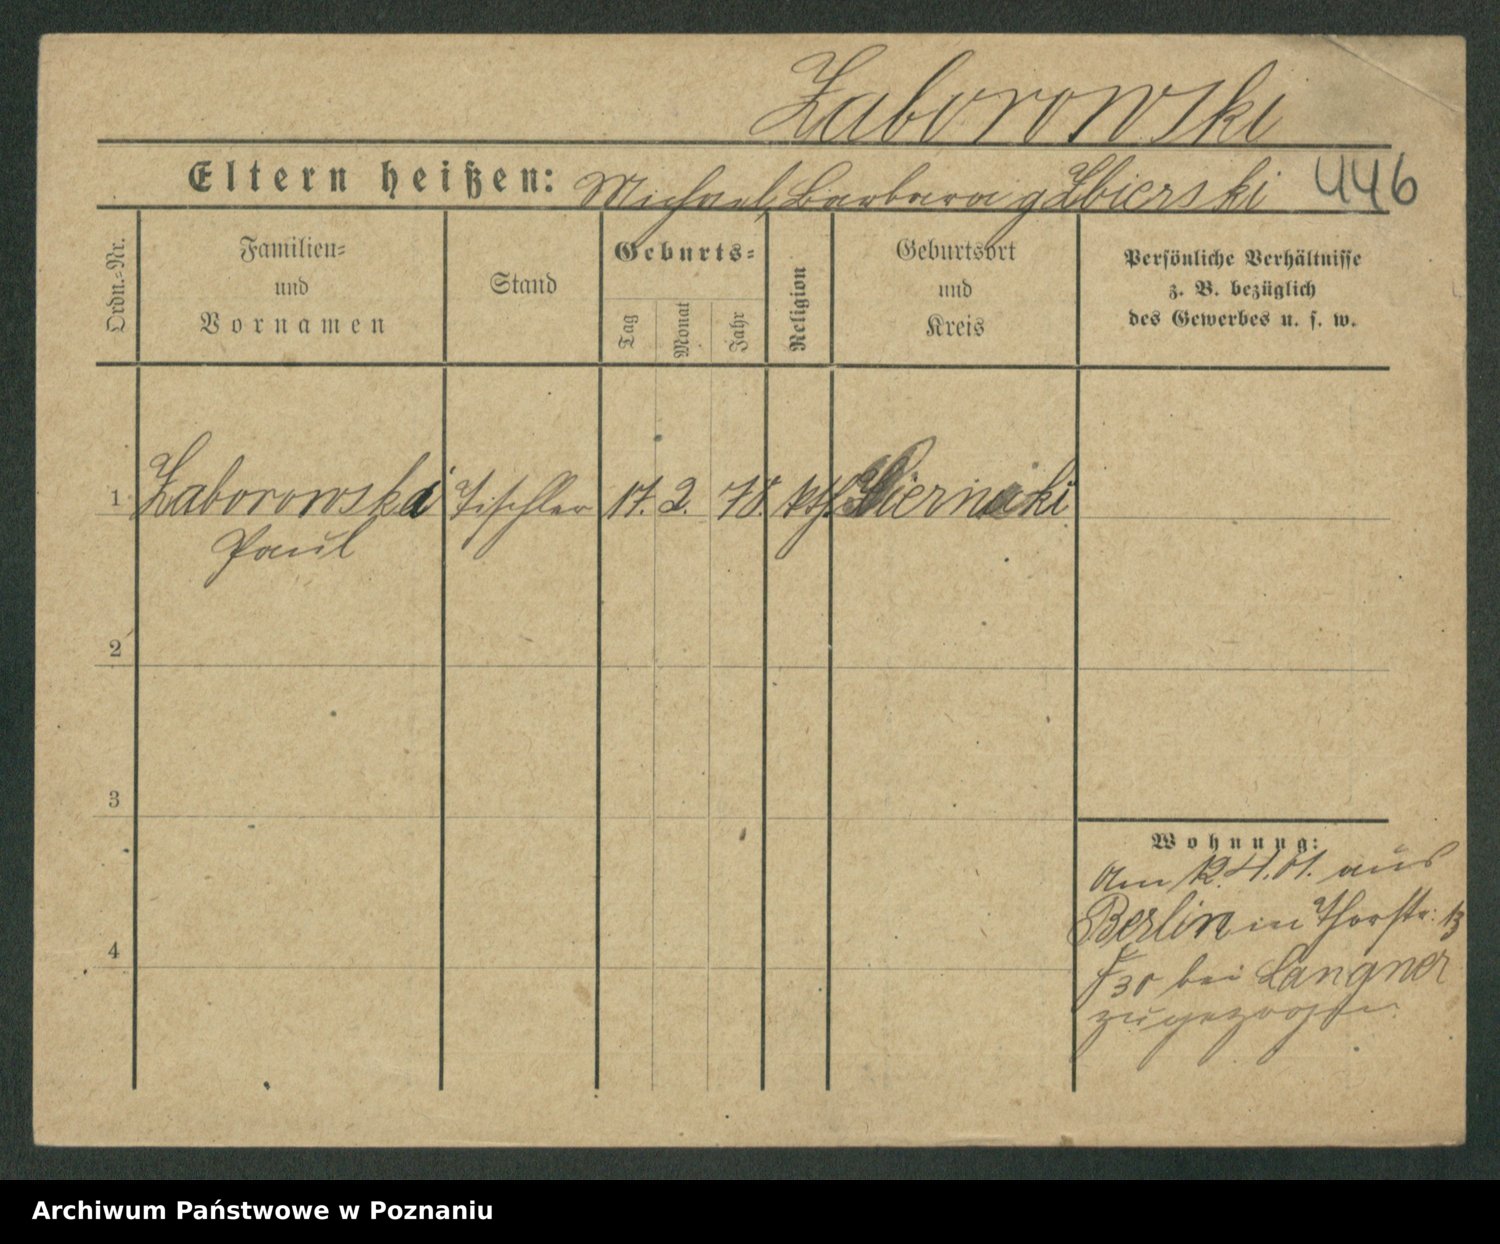 Zaborowski
Eltern heißen: Michael, Barbara g Zbierski 446
Ordn.=Nr.
Familien=
und
Vornamen
Stand
Geburts=
Tag
Monat
Jahr
Religion
Geburtsort
und
Kreis
Persönliche Verhältnisse
z. B. bezüglich
des Gewerbes u. s. w.
1 Zaborowski Tischler 17. 2. 78. kth. Biernacki
Paul
2
3
4
Wohnung:
Am 12.4.01. aus
Berlin in Thorstr. 13
bei Langner
zugezogen.
Archiwum Państwowe w Poznaniu